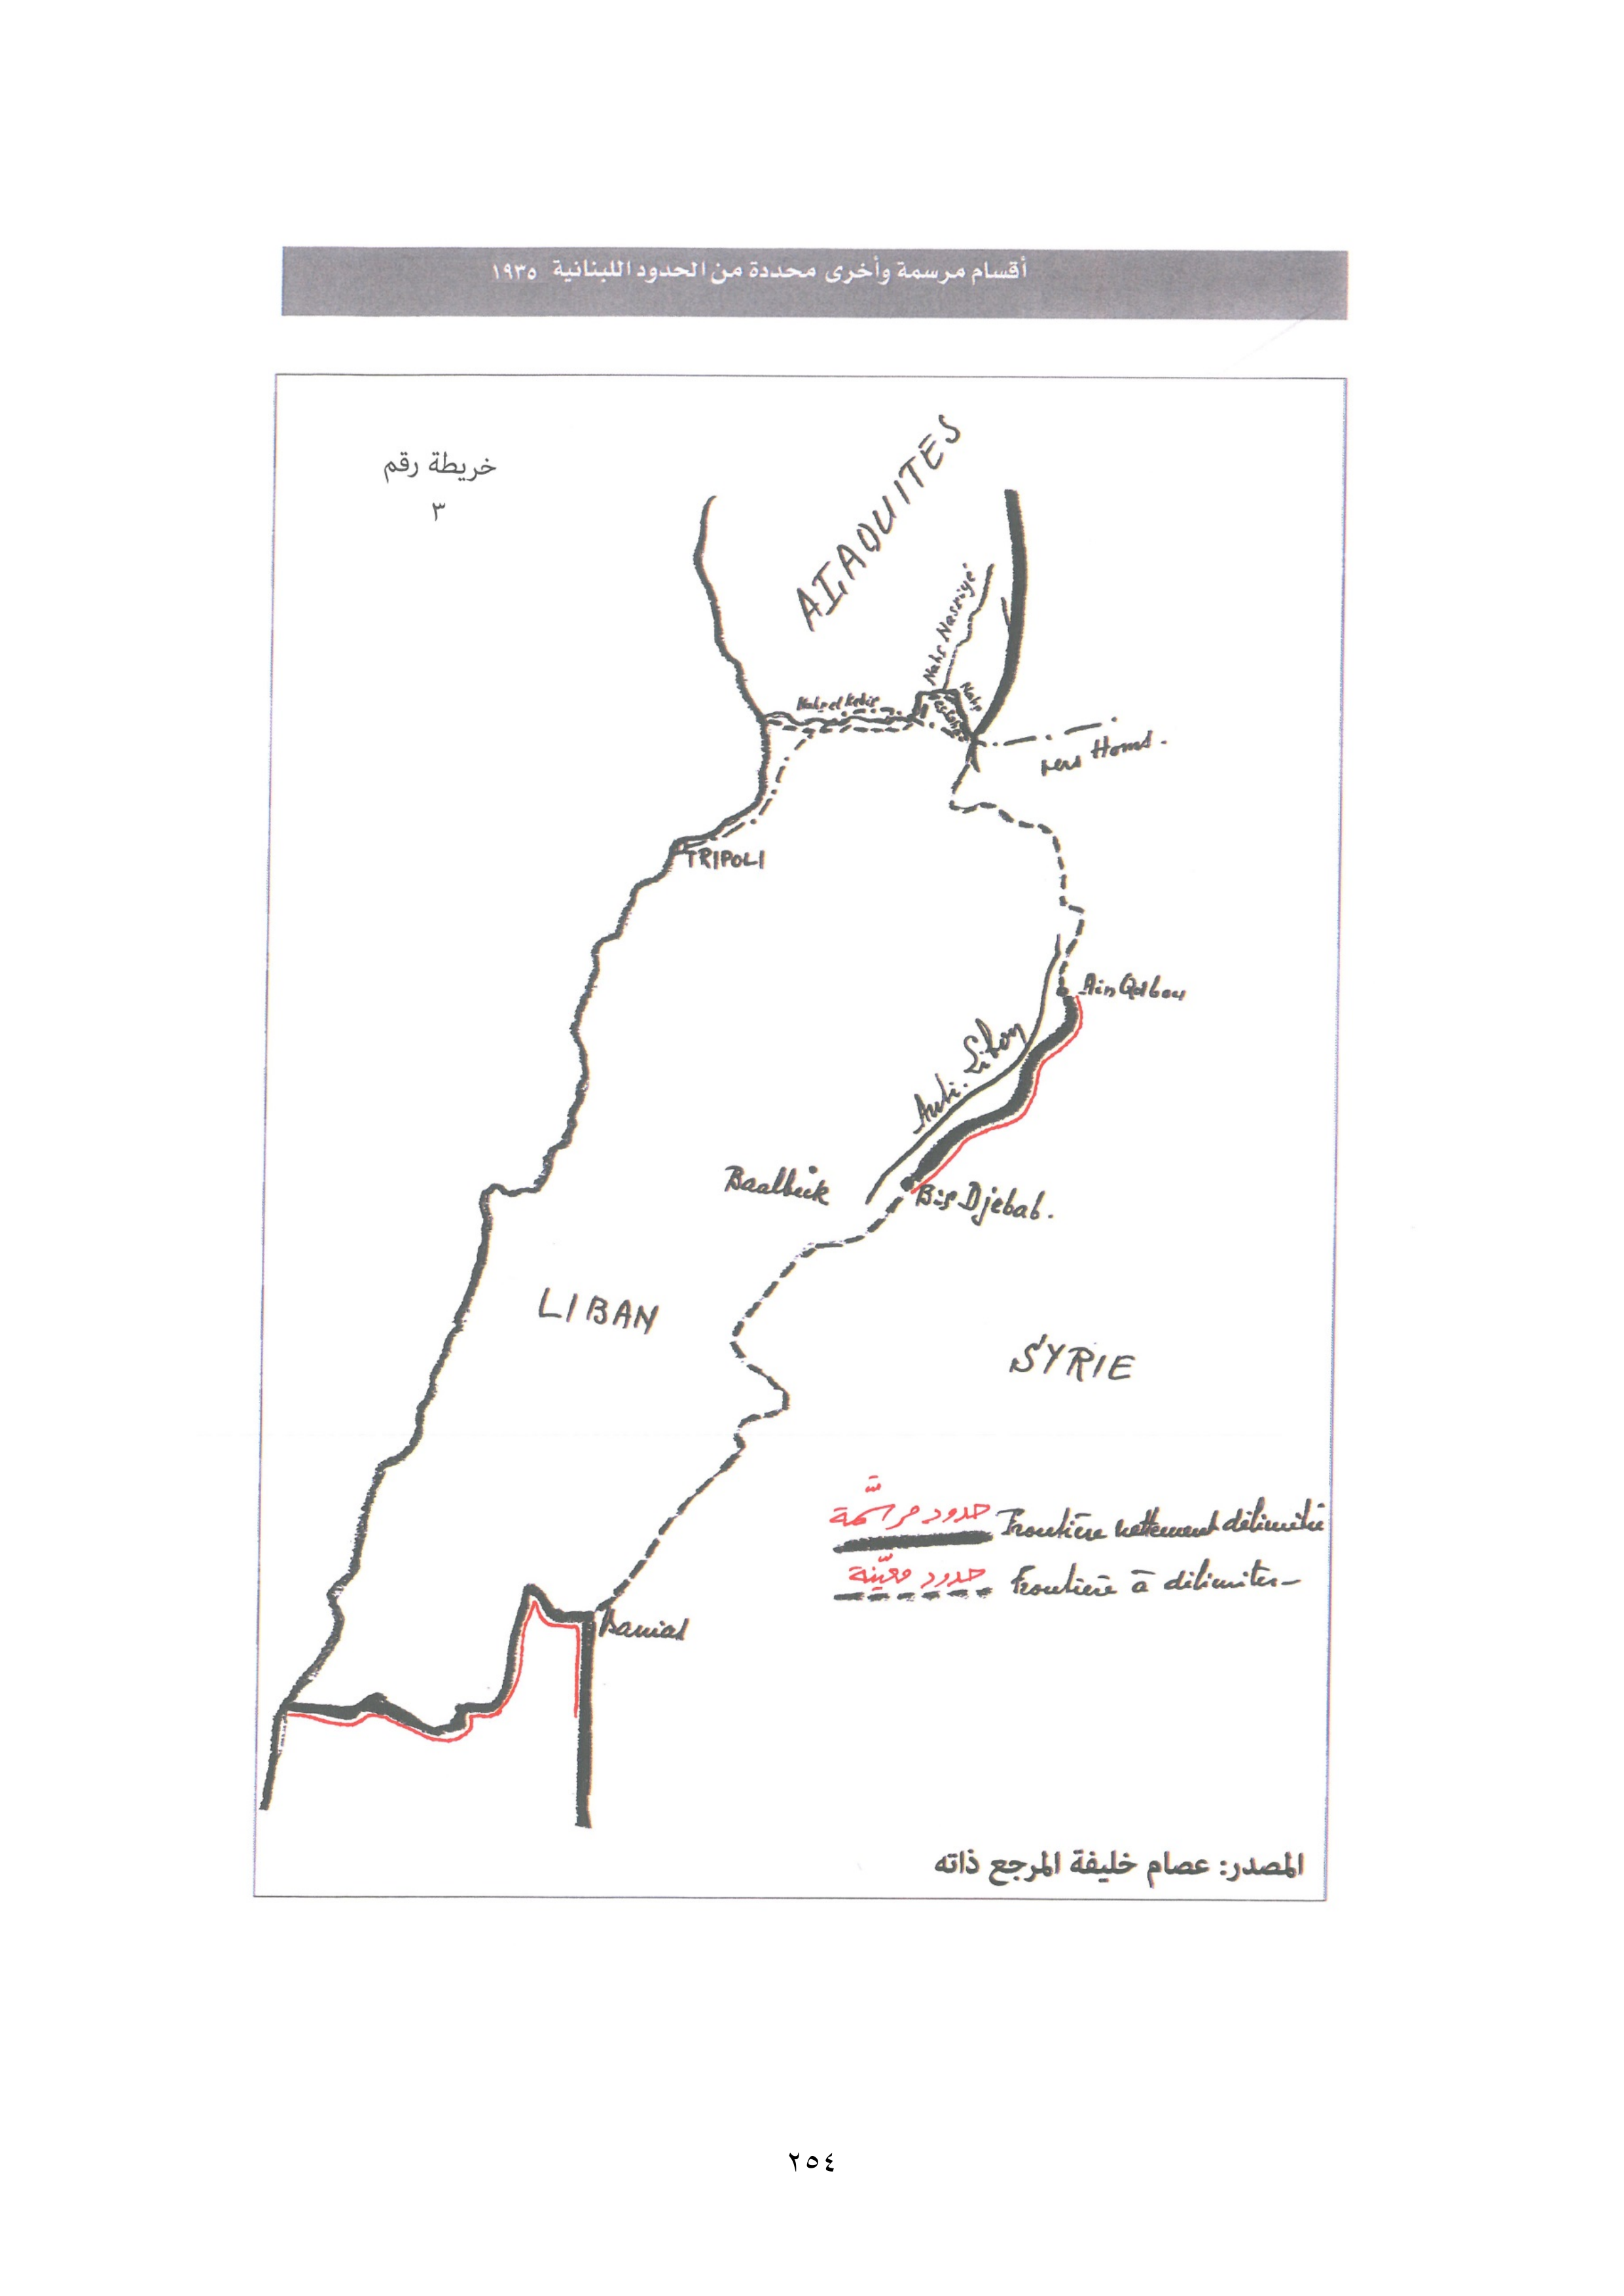 أقسام مرسمة وأخرى محددة من الحدود اللبنانية ١٩٣٥
خريطة رقم
٣
ALAOUITES
Nahr Nasriyé
Nahr el Kebir
Nahr
vers Homs.
TRIPOLI
Ain Qabou
Anti. Liban
Baalbeck
Bir Djebab.
LIBAN
SYRIE
حدود مرسّمة
Frontière nettement délimitée
حدود معيّنة
Frontière à délimiter
Banias
المصدر: عصام خليفة المرجع ذاته
٢٥٤